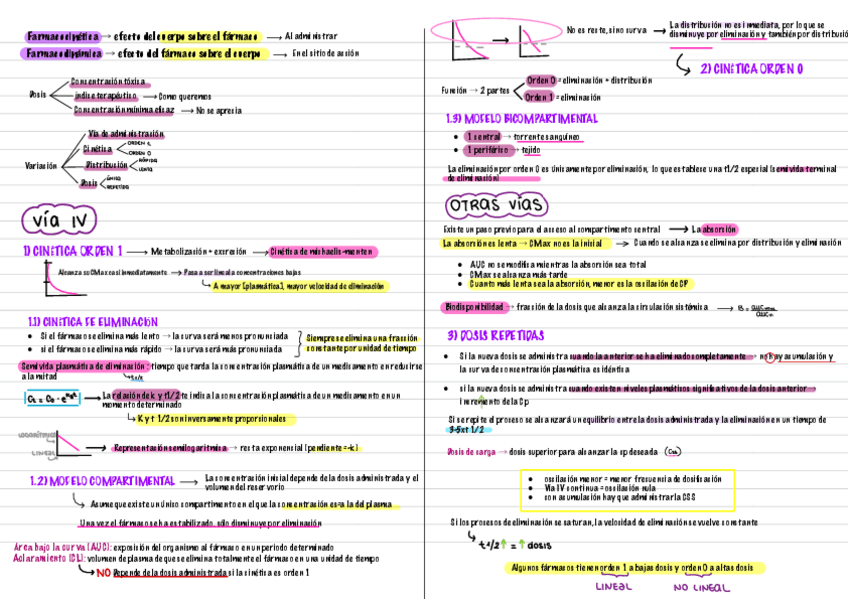 Farmacocinética → efecto del cuerpo sobre el fármaco → Al administrar
Farmacodinámica → efecto del fármaco sobre el cuerpo → En el sitio de acción
Dosis
Concentración tóxica
índice terapéutico → Como queremos
Concentración mínima eficaz → No se aprecia
Variación
Vía de administración
Cinética
ORDEN 1
ORDEN 0
Distribución
RÁPIDA
LENTA
Dosis
ÚNICA
REPETIDA
VÍA IV
1) CINÉTICA ORDEN 1 → Metabolización + excreción → Cinética de michaelis-menten
Alcanza su CMax casi inmediatamente → Pasa a ser lineal a concentraciones bajas
A mayor [plasmática], mayor velocidad de eliminación
1.1) CINÉTICA DE ELIMINACIÓN
• Si el fármaco se elimina más lento → la curva será menos pronunciada
• si el fármaco se elimina más rápido → la curva será más pronunciada
Siempre se elimina una fracción
constante por unidad de tiempo
Semivida plasmática de eliminación: tiempo que tarda la concentración plasmática de un medicamento en reducirse
a la mitad
La relación de k y t1/2 te indica la concentración plasmática de un medicamento en un
momento determinado
K y t 1/2 son inversamente proporcionales
LOGARÍTMICO
LINEAL
Representación semilogarítmica → recta exponencial (pendiente = -k)
1.2) MODELO COMPARTIMENTAL → La concentración inicial depende de la dosis administrada y el
volumen del reservorio
Asume que existe un único compartimento en el que la concentración es = a la del plasma
Una vez el fármaco se ha estabilizado, sólo disminuye por eliminación
Área bajo la curva (AUC): exposición del organismo al fármaco en un periodo determinado
Aclaramiento (CL): volumen de plasma de que se elimina totalmente el fármaco en una unidad de tiempo
NO Depende de la dosis administrada si la cinética es orden 1
No es recta, sino curva → La distribución no es inmediata, por lo que se
disminuye por eliminación y también por distribución
2) CINÉTICA ORDEN 0
Función → 2 partes
Orden 0 = eliminación + distribución
Orden 1 = eliminación
1.3) MODELO BICOMPARTIMENTAL
• 1 central → torrente sanguíneo
• 1 periférico → tejido
La eliminación por orden 0 es únicamente por eliminación, lo que establece una t1/2 especial (semivida terminal
de eliminación)
OTRAS VÍAS
Existe un paso previo para el acceso al compartimento central → La absorción
La absorción es lenta → CMax no es la inicial → Cuando se alcanza se elimina por distribución y eliminación
• AUC no se modifica mientras la absorción sea total
• CMax se alcanza más tarde
• Cuanto más lenta sea la absorción, menor es la oscilación de CP
Biodisponibilidad → fracción de la dosis que alcanza la circulación sistémica →
3) DOSIS REPETIDAS
• Si la nueva dosis se administra cuando la anterior se ha eliminado completamente → no hay acumulación y
la curva de concentración plasmática es idéntica
• si la nueva dosis se administra cuando existen niveles plasmáticos significativos de la dosis anterior →
incremento de la Cp
Si se repite el proceso se alcanzará un equilibrio entre la dosis administrada y la eliminación en un tiempo de
3-5xt 1/2
Dosis de carga → dosis superior para alcanzar la cp deseada
• oscilación menor = menor frecuencia de dosificación
• Vía IV continua = oscilación nula
• con acumulación hay que administrar la CSS
Si los procesos de eliminación se saturan, la velocidad de eliminación se vuelve constante
t 1/2 ↑ = ↑ dosis
Algunos fármacos tienen orden 1 a bajas dosis y orden 0 a altas dosis
LINEAL
NO LINEAL